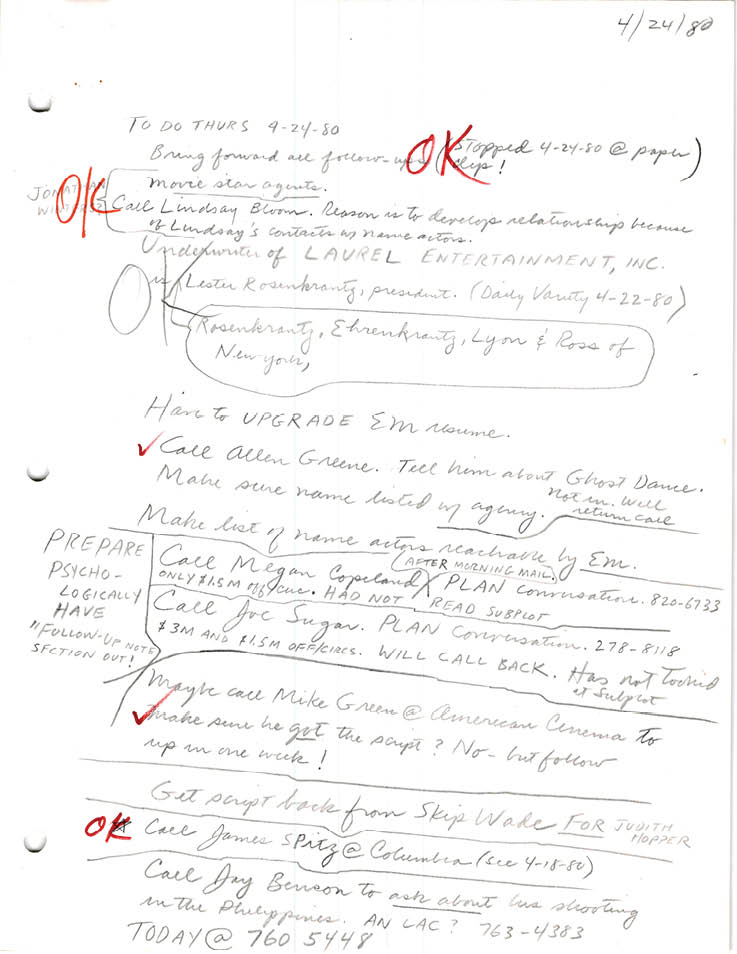 4/24/80
TO DO THURS 4-24-80
Bring forward all follow-ups (Stopped 4-24-80 @ paper
clip!)
OK
movie star agents.
JONATHAN
WINTERS?
OK
Call Lindsay Bloom. Reason is to develop relationship because
of Lindsay's contacts w/ name actors.
Underwriter of LAUREL ENTERTAINMENT, INC.
is Lester Rosenkrantz, president. (Daily Variety 4-22-80)
OK
Rosenkrantz, Ehrenkrantz, Lyon & Ross of
New York,
Have to UPGRADE EM resume.
✓ Call Allen Greene. Tell him about Ghost Dance.
Make sure name listed w/ agency. Not in. Will
return call
Make list of name actors reachable by EM.
PREPARE
PSYCHO-
LOGICALLY
HAVE
"FOLLOW-UP NOTE
SECTION OUT!
(AFTER MORNING MAIL.)
Call Megan Copeland PLAN Conversation. 820-6733
ONLY $1.5M off/circ. HAD NOT READ SUBPLOT
Call Joe Sugar. PLAN Conversation. 278-8118
$3M AND $1.5M OFF/CIRCS. WILL CALL BACK. Has not
at Subplot
Maybe call Mike Green @ American Cinema to
✓ make sure he got the script? No - but follow
up in one week!
Get script back from Skip Wade FOR JUDITH
HOPPER
OK Call James Spitz @ Columbia (see 4-18-80)
Call Jay Benson to ask about his shooting
in the Philippines. AN LAC? 763-4383
TODAY @ 760 5448